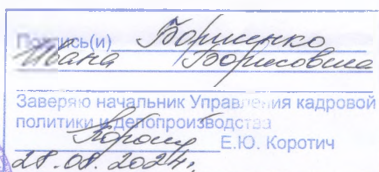 Подпись(и) Борисенко
Ивана Борисовича
Заверяю начальник Управления кадровой
политики и делопроизводства
Е.Ю. Коротич
28.08.2024г.